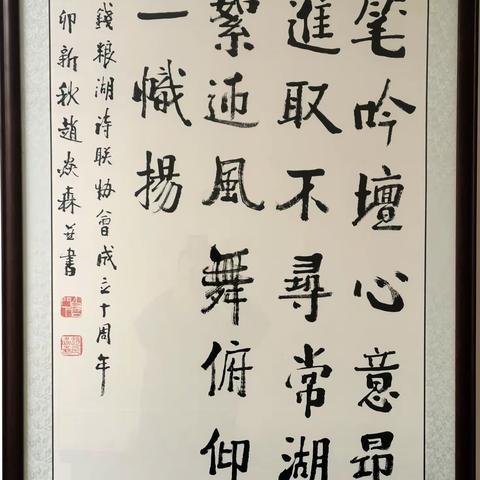 吟壇心意昂
進取不尋常湖
絮迎風舞俯仰
一幟揚
錢粮湖诗联协會成立十周年
卯新秋趙焱森並書